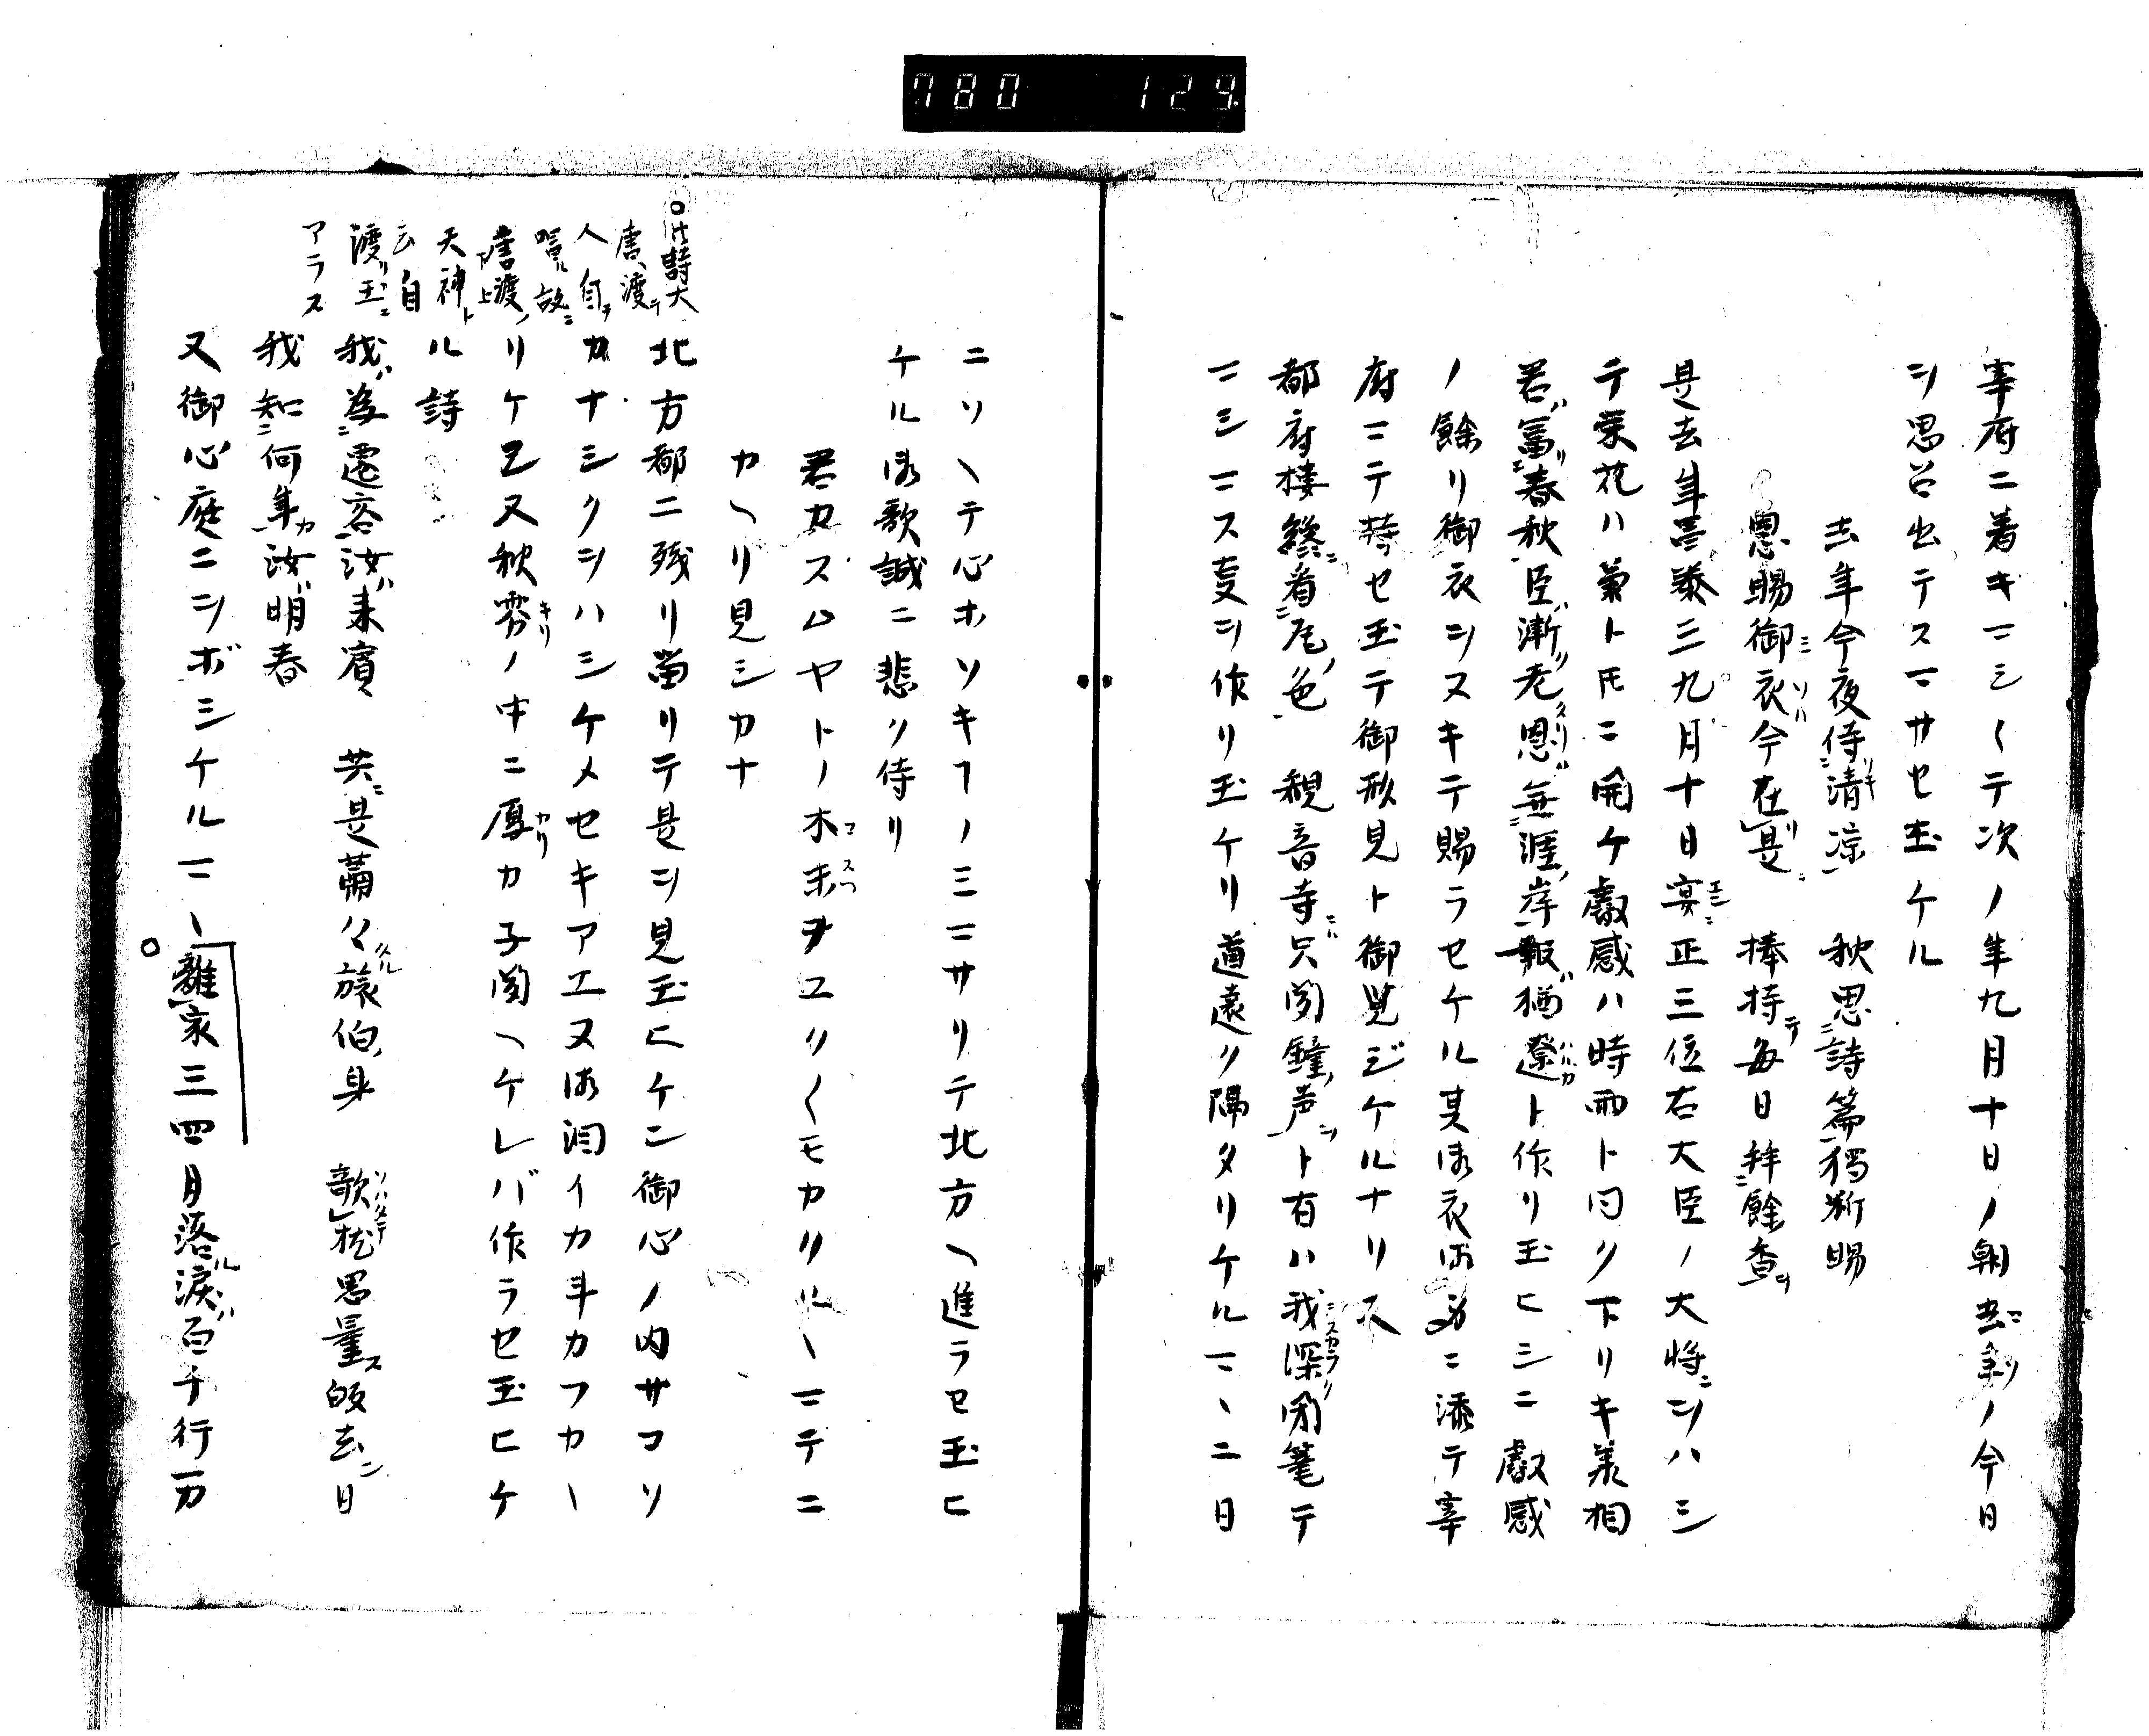 780 129
宰府ニ着キマシ〳〵テ次ノ年九月十日ノ朝去年ノ今日
ヲ思召出テスマサセ玉ケル
去年今夜侍清凉 秋思詩篇獨断腸
恩賜御衣今在是 捧持毎日拝餘香
是去年昌泰三九月十日宴正三位右大臣ノ大将ヲハシ
テ栄花ハ菊ト尺ニ開ケ叡感ハ時雨ト同ク下リキ羕相
君冨春秋臣漸老恩無涯岸報猶遼ト作リ玉ヒシニ叡感
ノ餘リ御衣ヲヌキテ賜ラセケル其御衣御身ニ添テ宰
府ニテ持セ玉テ御形見ト御覧ジケルナリ又
都府楼纔看瓦色 観音寺只聞鐘声ト有ハ我深閇篭テ
マシマス叓ヲ作リ玉ケリ道遠ク隔タリケルマヽニ日
ニソヘテ心ホソキフノミマサリテ北方ヘ進ラセ玉ヒ
ケル御歌誠ニ悲ク侍リ
君カスムヤトノ木末ヲユク〳〵モカクルヽマテニ
カヘリ見シカナ
北方都ニ残リ畄リテ是ヲ見玉ヒケン御心ノ内サコソ
カナシクヲハシケメセキアエヌ御泪イカ斗カフカヽ
リケン又秋雰ノ中ニ厚カ子聞ヘケレバ作ラセ玉ヒケ
ル詩
我為遷客汝来賓 共是蕭々旅伯身 歌枕思量皈去日
我知何年汝明春
又御心慰ニヲボシケルマヽ離家三四月落涙百千行万
○此詩大
唐渡テ
人自
唱故ニ
唐渡ノ
天神ト
云自
渡リ玉ニ
アラス